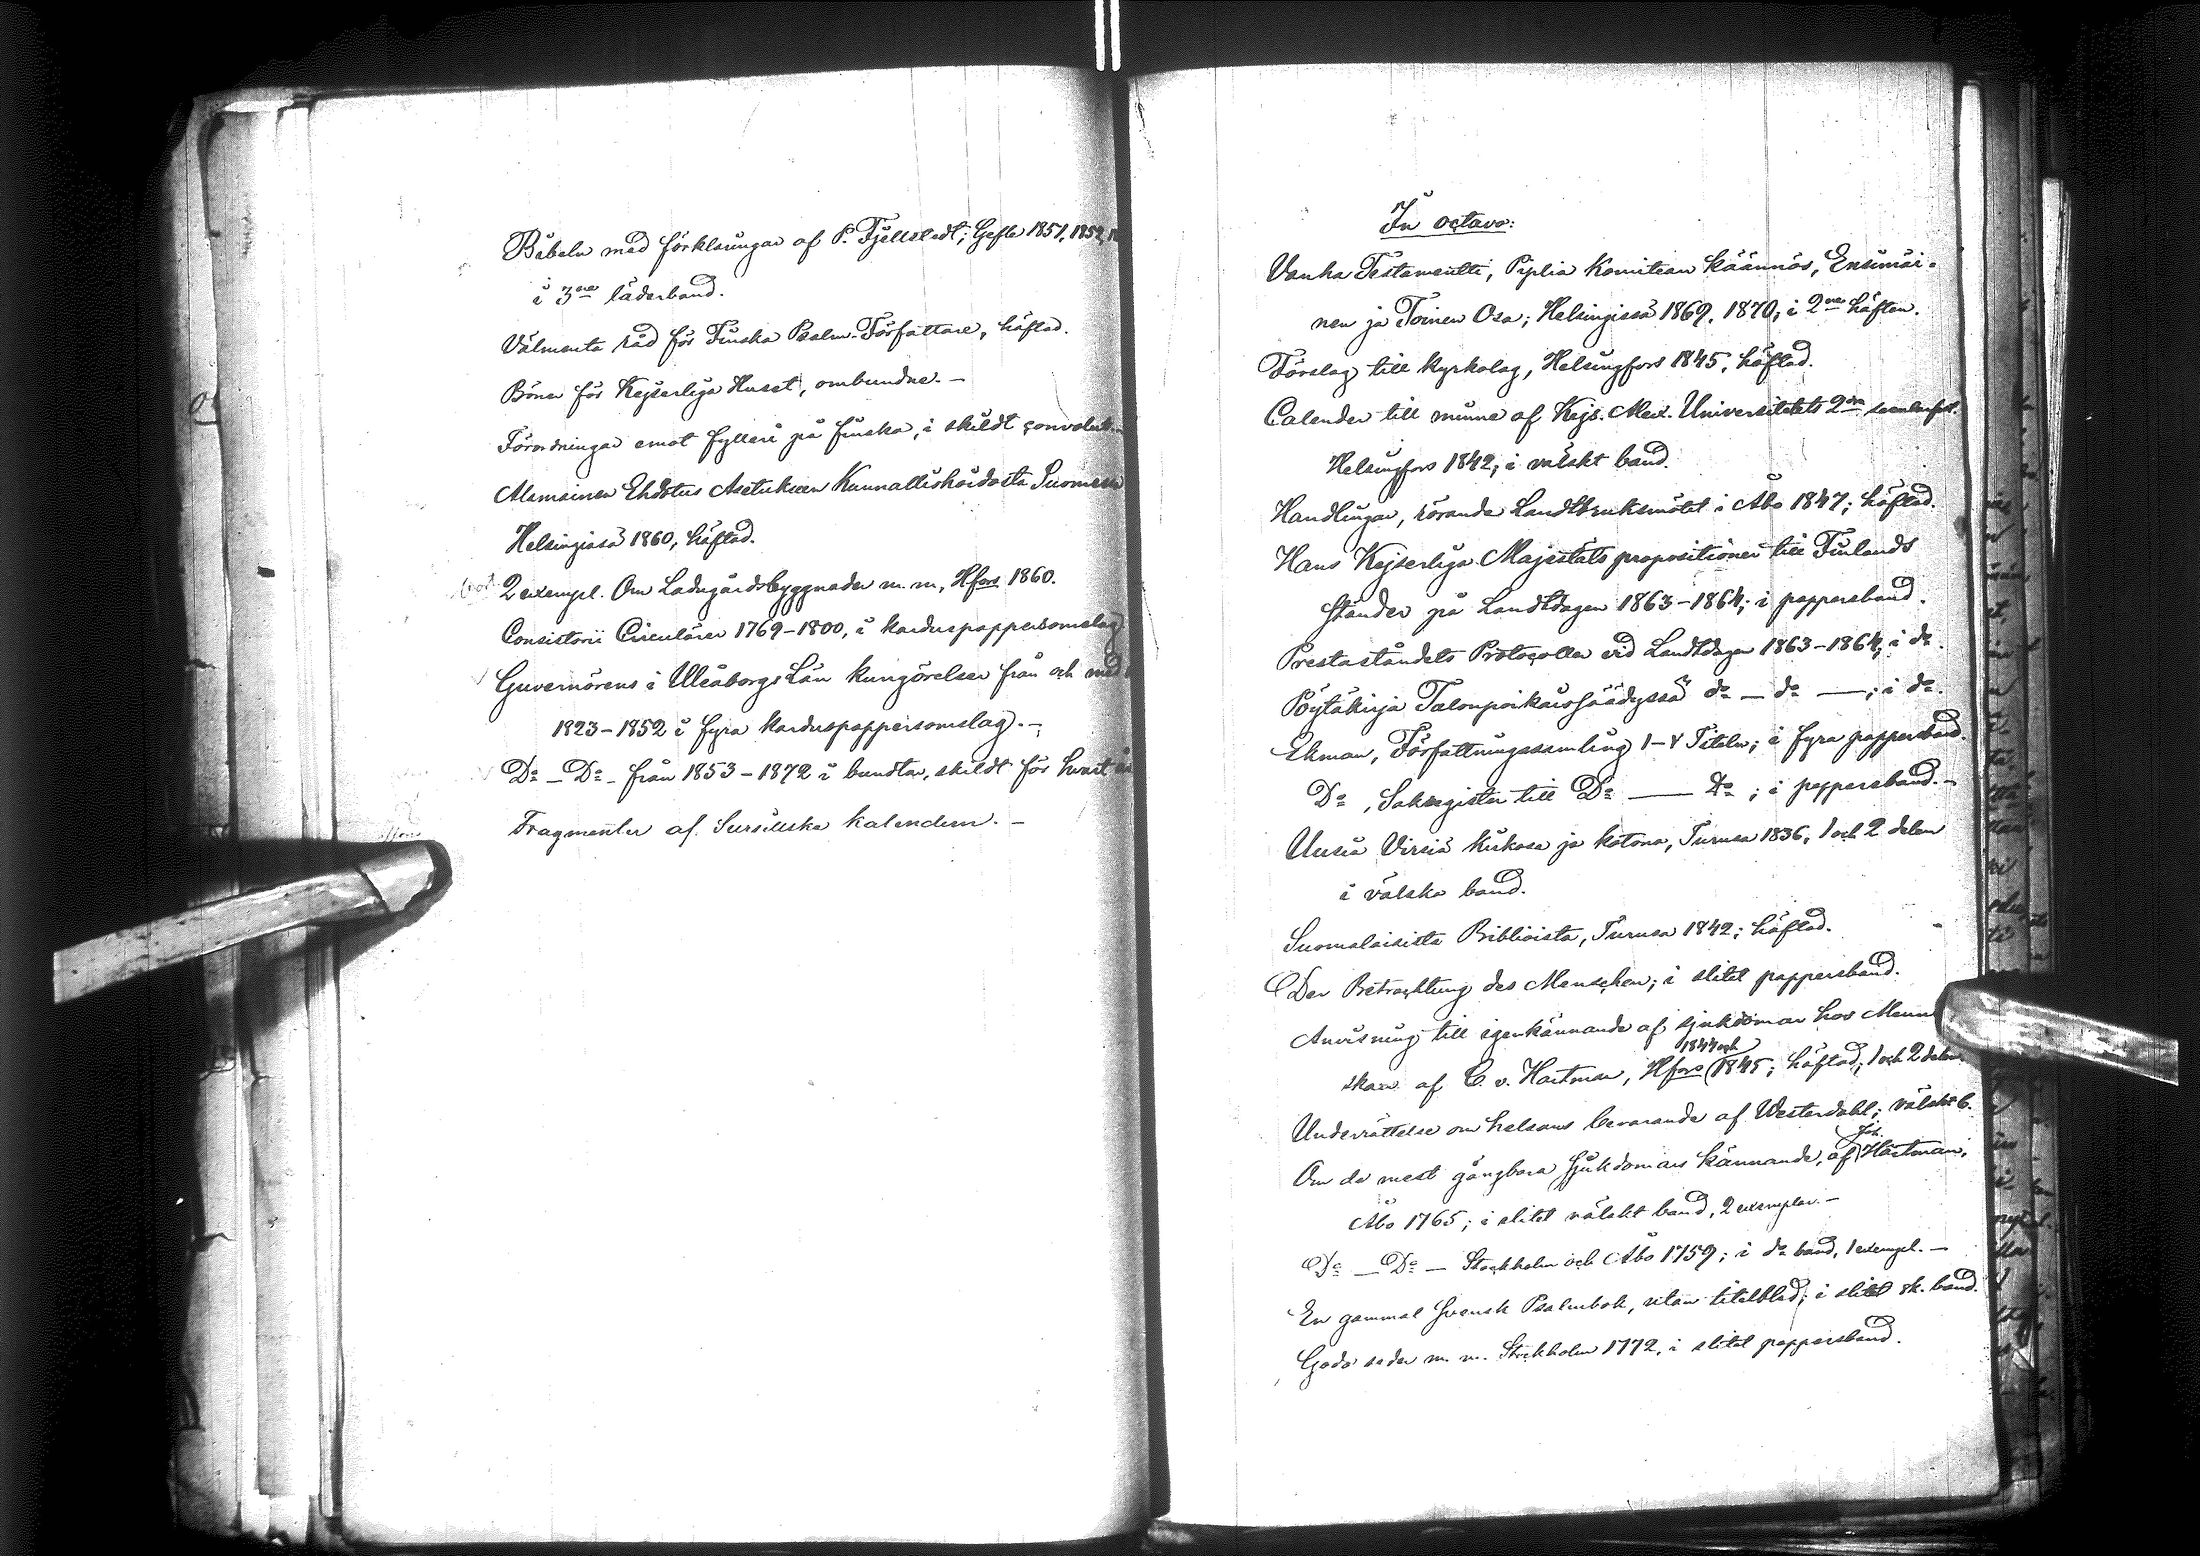 Bibeln med förklaringar af P. Fjellstedt; Gefle 1851, 1852,
i 3ne läderband.
Välmenta råd för Finska Psalm-Författare, häftad.
Böner för Kejserliga Huset, ombundne. -
Förordningar emot fylleri på finska, i skildt convolut. -
Alamainen Ehdotus Asetukseen Kunnallishoidosta Suomessa
Helsingissä 1860, häftad.
2 exempl. Om Ladugårdsbyggnader m. m, Hfors 1860.
Consistorii Circulärer 1769-1800, i karduspappersomslag
Guvernörens i Uleåborgs Län kungörelser från och med
1823-1852 i fyra karduspappersomslag. -
Do - Do - från 1853-1872 i bundtar, skildt för hvart
Fragmenter af Sursillska kalendern. -
In octavo:
Vanha Testamentti, Piplia Komitean käännös, Ensimäi-
nen ja Toinen Osa; Helsingissä 1869, 1870, i 2ne häften.
Förslag till kyrkolag, Helsingfors 1845, häftad.
Calender till minne af Kejs. Alex. Universitetets 2dra secularfest.
Helsingfors 1842, i wälskt band.
Handlingar, rörande Landtbruksmötet i Åbo 1847; häftad.
Hans Kejserliga Majestäts propositioner till Finlands
Ständer på Landtdagen 1863-1864; i pappersband.
Prestaståndets Protocoller vid Landtdagen 1863-1864, i do.
Pöytäkirja Talonpoikaissäädyssä do - do -; i do.
Ekman, Författningssamling 1-4 Titeln; i fyra pappersband.
Do, Sakregister till Do - Do; i pappersband. -
Uusia Virsiä kirkosa ja kotona, Turusa 1836, 1 och 2 delen
i välska band.
Suomalaisista Biblioista, Turusa 1842; häftad.
Der Betrachtung des Menschen; i slitet pappersband.
Anvisning till igenkännande af sjukdomar hos Menni
skan af C. v. Hartman, Hfors 1844 och 1845; häftad; 1 och 2 delen.
Underrättelse om helsans bevarande af Westerdahl; välskt b.
Om de mest gångbara sjukdomars kännande, af Joh. Hartman,
Åbo 1765; i slitet välskt band, 2 exemplar. -
Do - Do - Stockholm och Åbo 1759; i do band, 1 exempl. -
En gammal Svensk Psalmbok, utan titelblad; i slitet sk. band.
Goda seder m. m. Stockholm 1772, i slitet pappersband.